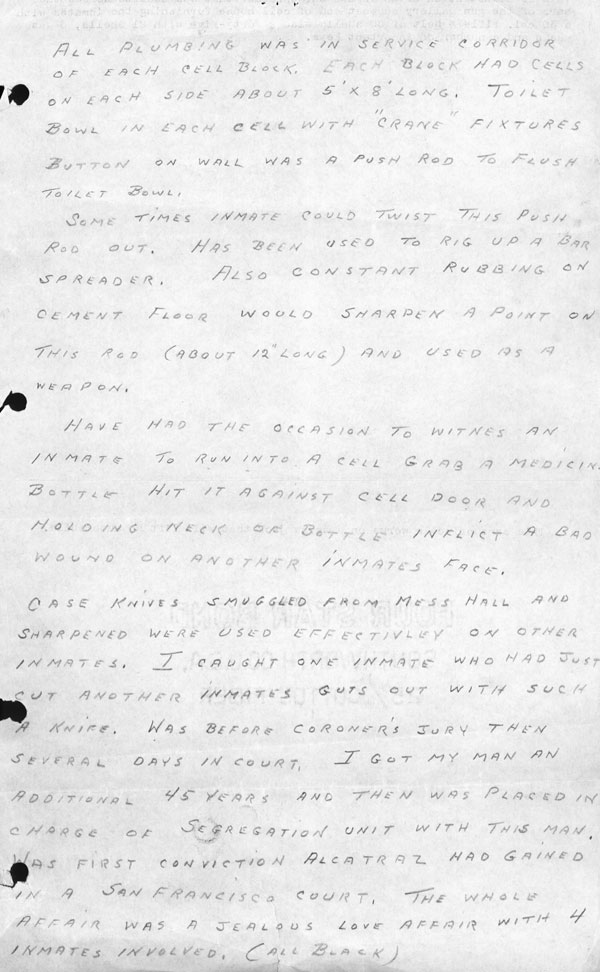 ALL PLUMBING WAS IN SERVICE CORRIDOR
OF EACH CELL BLOCK. EACH BLOCK HAD CELLS
ON EACH SIDE ABOUT 5' X 8' LONG. TOILET
BOWL IN EACH CELL WITH "CRANE" FIXTURES
BUTTON ON WALL WAS A PUSH ROD TO FLUSH
TOILET BOWL.
SOME TIMES INMATE COULD TWIST THIS PUSH
ROD OUT. HAS BEEN USED TO RIG UP A BAR
SPREADER. ALSO CONSTANT RUBBING ON
CEMENT FLOOR WOULD SHARPEN A POINT ON
THIS ROD (ABOUT 12" LONG) AND USED AS A
WEAPON.
HAVE HAD THE OCCASION TO WITNES AN
INMATE TO RUN INTO A CELL GRAB A MEDICIN
BOTTLE HIT IT AGAINST CELL DOOR AND
HOLDING NECK OF BOTTLE INFLICT A BAD
WOUND ON ANOTHER INMATES FACE.
CASE KNIVES SMUGGLED FROM MESS HALL AND
SHARPENED WERE USED EFFECTIVLEY ON OTHER
INMATES. I CAUGHT ONE INMATE WHO HAD JUST
CUT ANOTHER INMATES GUTS OUT WITH SUCH
A KNIFE. WAS BEFORE CORONER'S JURY THEN
SEVERAL DAYS IN COURT. I GOT MY MAN AN
ADDITIONAL 45 YEARS AND THEN WAS PLACED IN
CHARGE OF SEGREGATION UNIT WITH THIS MAN.
WAS FIRST CONVICTION ALCATRAZ HAD GAINED
IN A SAN FRANCISCO COURT. THE WHOLE
AFFAIR WAS A JEALOUS LOVE AFFAIR WITH 4
INMATES INVOLVED. (ALL BLACK)